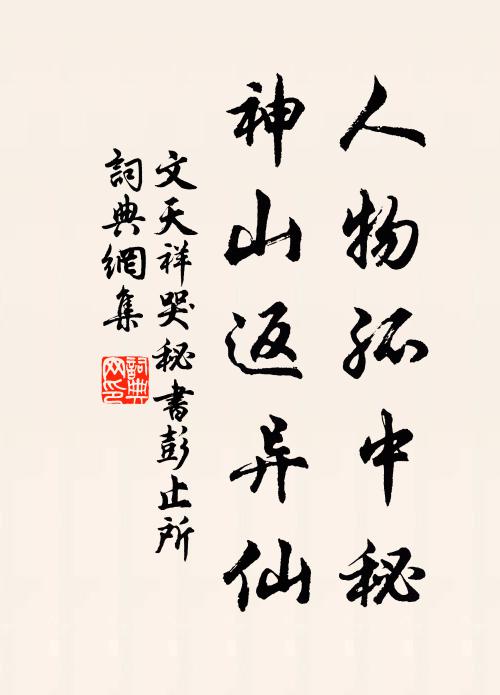 人物孤中秘
神山返异仙
文天祥哭秘書彭止所
詞典網集
詞典网印